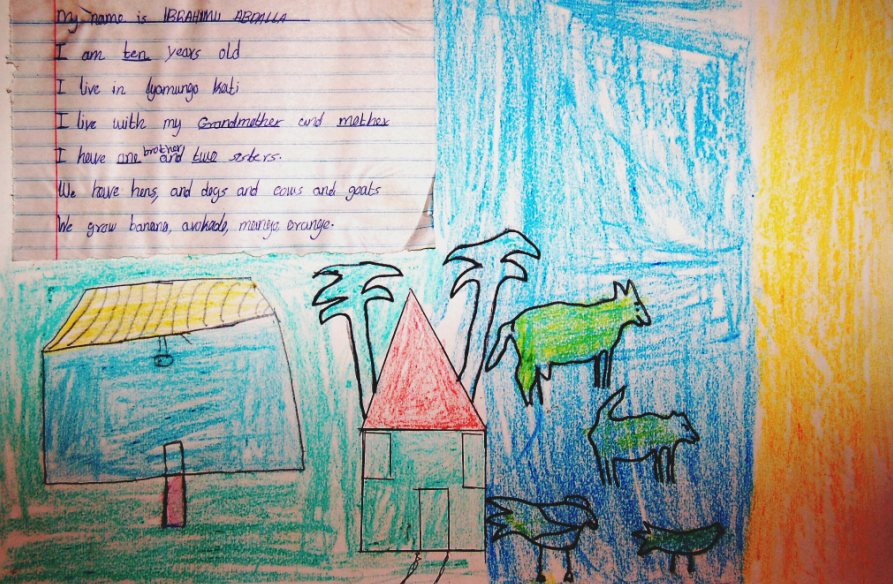 My name is IBRAHIMU ABDALLA
I am ten years old
I live in lyamungo kati
I live with my Grandmother and mother
I have one brother and two sisters.
We have hens, and dogs and cows and goats
We grow banana, avokado, mango, orange.